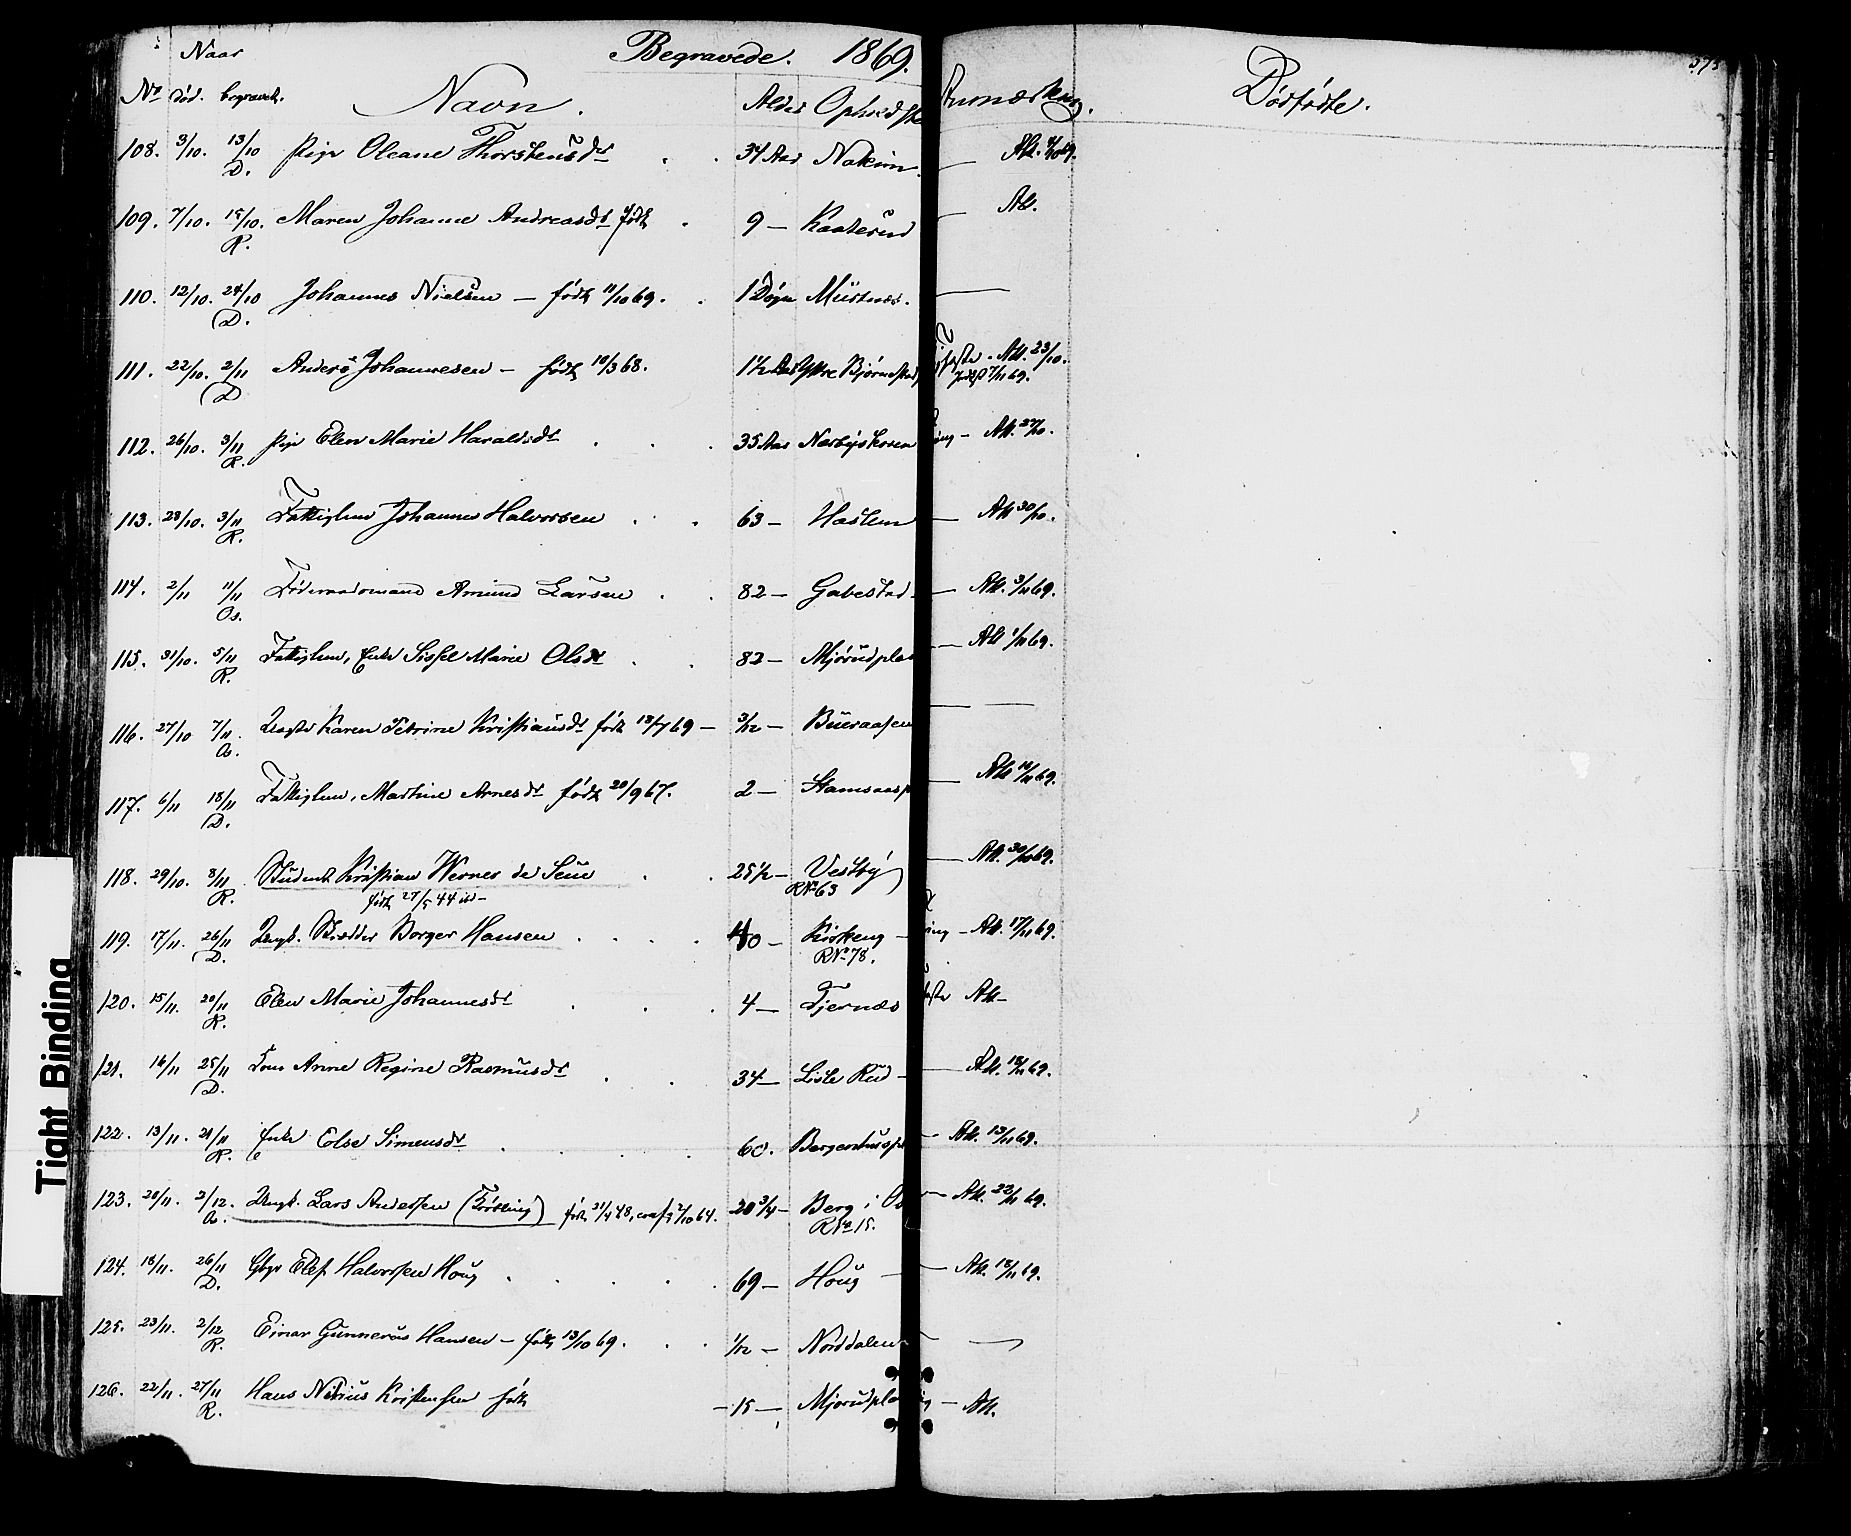 Naar Begravede. 1869. 375
No død. begravet. Navn. Alder Opholdste Anmærkng. Dødfødte.
108. 3/10. 13/10 D. Pige Oleane Thorstensdr 34 Aar Nakim Att. 4/10 69.
109. 7/10. 15/10. R. Maren Johanne Andreasdr født 9 — Kaaterud Att.
110. 12/10. 24/10 D. Johannes Nielsen — født 11/10 69. 1 Døgn Mustnæs. —
111. 22/10. 2/11 D. Anders Johannesen — født 10/3 68. 1 1/2 Aar Yttre Bjørnestad Att. 23/10.
7/11 69.
112. 26/10. 3/11 R. Pige Elen Marie Haraldsdr 35 Aar Næsbyskoven — Att. 27/10.
113. 23/10. 3/11 R. Fattiglem Johannes Halvorsen 63 — Haslem — Att 30/10.
114. 2/11 11/11 Os. Føderaadsmand Amund Larsen 82 — Gabestad — Att. 3/11 69.
115. 31/10. 5/11 R. Fattiglem, Enke Sissel Marie Olsdr 82 — Mjørudplad — Att 1/11 69.
116. 27/10 7/11. Aa. Uægte Karen Petrine Kristiansdr født 13/7 69 — 3/12 — Bueraasen —
117. 6/11 18/11 D. Fattiglem, Martine Arnesdr født 20/9 67. 2 — Stamsaasp — Att 10/11 69.
118. 29/10. 8/11 R. Student Kristian Werner de Seue 25 1/2 — Vestby — Att. 30/10 69.
født 27/5 44 R No 63
119. 17/11. 26/11 D. Ungk. Skrædder Borger Hansen 40 — Kirkeng — Att. 17/11 69.
R No 78.
120. 15/11. 20/11 R. Elen Marie Johannesdr 4 — Tjernæs Att —
121. 16/11 25/11 D. Kone Anne Regine Rasmusdr 34 — Lisle Rud — Att. 18/11 69.
122. 13/11. 21/11 R. Enke Else Simensdr 60. Bergerhuspl — Att. 13/11 69.
123. 20/11. 2/12. Aa. Ungk. Lars Andersen født 21/1 48, conf. 2/10 64. 20 3/4 — Berg i — Att. 22/11 69.
R No 15.
124. 18/11. 26/11 D. Gbgr Elef Halvorsen Houg 69 — Houg — Att. 18/11 69.
125. 23/11. 2/12 R. Einar Gunnerus Hansen — født 13/10 69. 1/12 — Norddalen —
126. 22/11. 27/11 R. Hans Nikius Kristensen født — 15 — Mjørudpla — Att.
Tight Binding